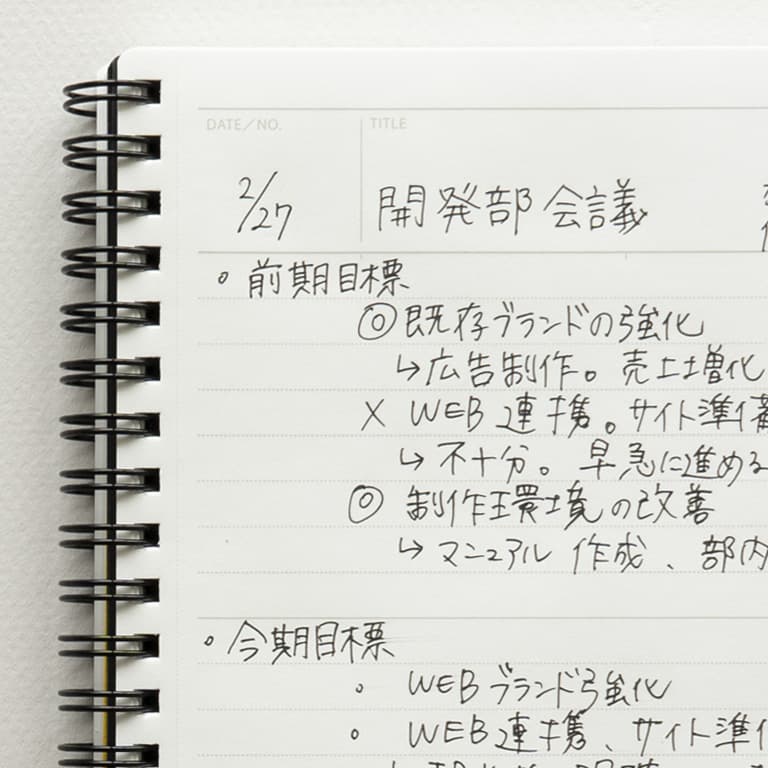 DATE/NO. TITLE
2/27 開発部会議
。前期目標
◎既存ブランドの強化
↳広告制作。売上増化
× WEB連携。サイト準備
↳不十分。早急に進める
◎ 制作環境の改善
↳マニュアル作成、部内
・今期目標
。WEBブランド強化
。WEB連携、サイト準